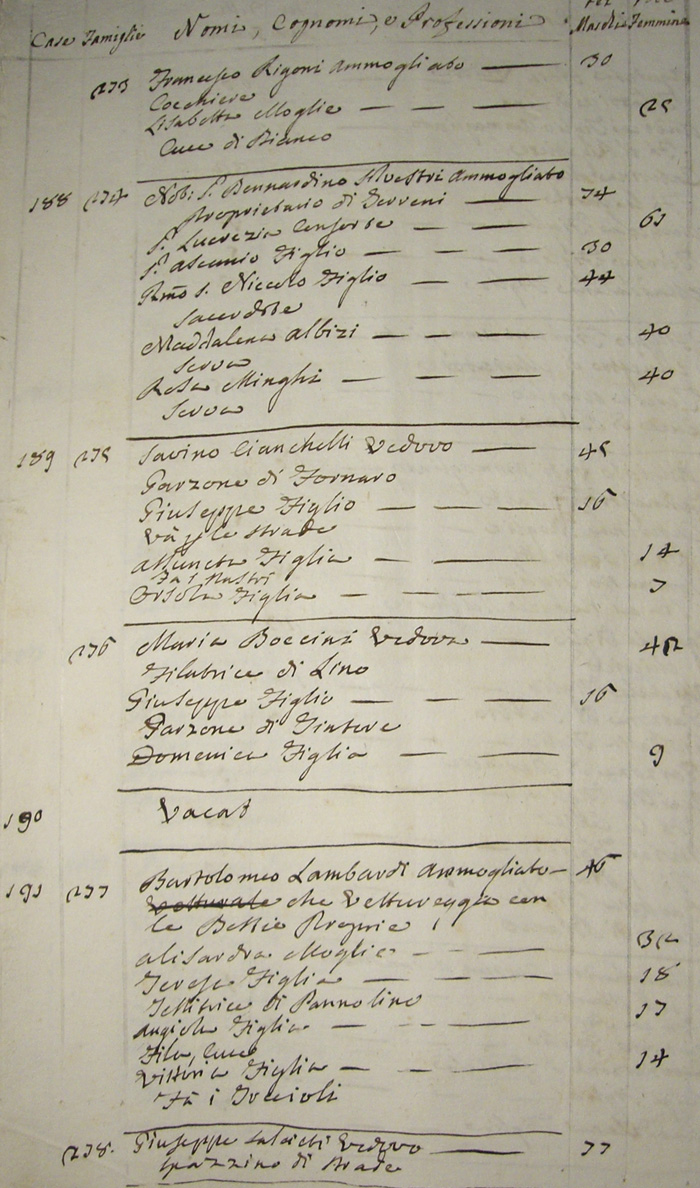 Case Famiglie Nomi, Cognomi, e Professioni Maschi Femmine
233 Francesco Rigoni Ammogliato 30
Cocchiere
Lisabetta Moglie 25
Cuce di Bianco
188 234 Nob: S. Bernardino Silvestri Ammogliato
Proprietario di Terreni 74
S. Lucrezia Consorte 61
S. Ascanio Figlio 30
Rmo S. Niccolo Figlio 44
Sacerdote
Maddalena Albizi 40
Serva
Rosa Minghi 40
Serva
189 235 Savino Cianchelli Vedovo 45
Garzone di Fornaro
Giuseppe Figlio 16
Và p. le strade
Assunta Figlia 14
Fa i Nastri
Orsola Figlia 7
236 Maria Boccini Vedova 42
Filatrice di Lino
Giuseppe Figlio 16
Garzone di Tintore
Domenica Figlia 9
190 Vacat
191 237 Bartolomeo Lambardi Ammogliato 46
Vetturale che Vettureggia con
le Bestie Proprie
Alisandra Moglie 32
Teresa Figlia 18
Tessitrice di Pannolino
Angiola Figlia 17
Fila, Cuce
Vittoria Figlia 14
Fà i Trecioli
238. Giuseppe Vedovo 77
Spazzino di Strade